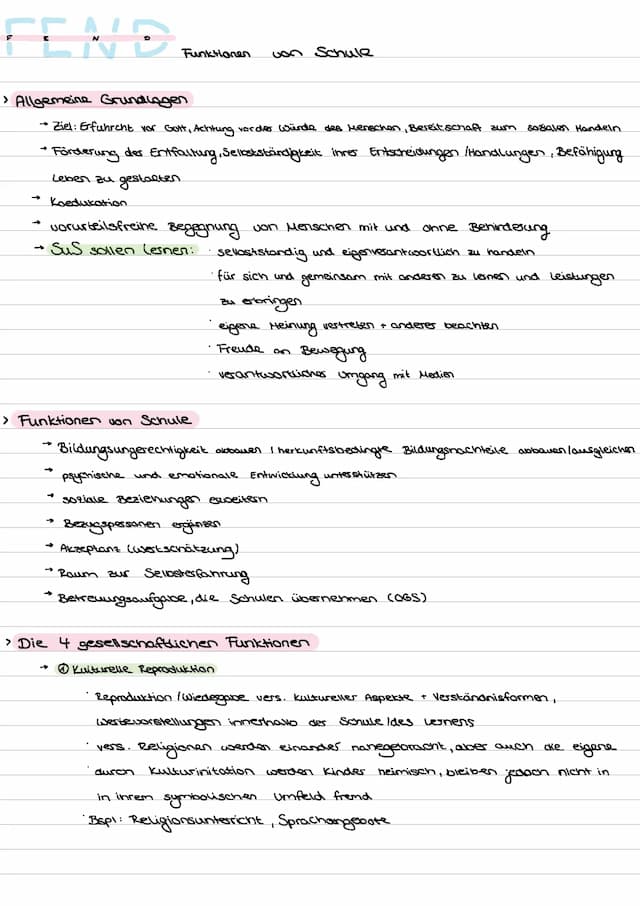 FEND
F E N D
Funktionen von Schule
> Allgemeine Grundlagen
→ Ziel: Erfuhrcht vor Gott, Achtung vor der Würde des Menschen, Bereitschaft zum sozialen Handeln
→ Förderung der Entfaltung, Selbstständigkeit ihrer Entscheidungen /Handlungen, Befähigung
Leben zu gestalten
→ Koedukation
→ vorurteilsfreihe Begegnung von Menschen mit und ohne Behinderung
→ SuS sollen lernen: · selbstständig und eigenverantwortlich zu handeln
· für sich und gemeinsam mit anderen zu lernen und Leistungen
zu erbringen
· eigene Meinung vertreten + anderer beachten
· Freude an Bewegung
· verantwortliches Umgang mit Medien
> Funktionen von Schule
→ Bildungsungerechtigkeit abbauen / herkunftsbedingte Bildungsnachteile abbauen/ausgleichen
→ psychische und emotionale Entwicklung unterstützen
→ soziale Beziehungen erweitern
→ Bezugspersonen ergänzen
→ Akzeptanz (Wertschätzung)
→ Raum zur Selbsterfahrung
→ Betreuungsaufgabe, die Schulen übernehmen (OGS)
> Die 4 gesellschaftlichen Funktionen
→ ① Kulturelle Reproduktion
· Reproduktion /Wiedergabe vers. kultureller Aspekte + Verständnisformen,
Wertevorstellungen innerhalb der Schule/des Lernens
· vers. Religionen werden einander nahegebracht, aber auch die eigene
· durch Kulturinitation werden Kinder heimisch, bleiben jedoch nicht in
in ihrem symbolischen Umfeld fremd
· Bspl: Religionsunterricht, Sprachangebote